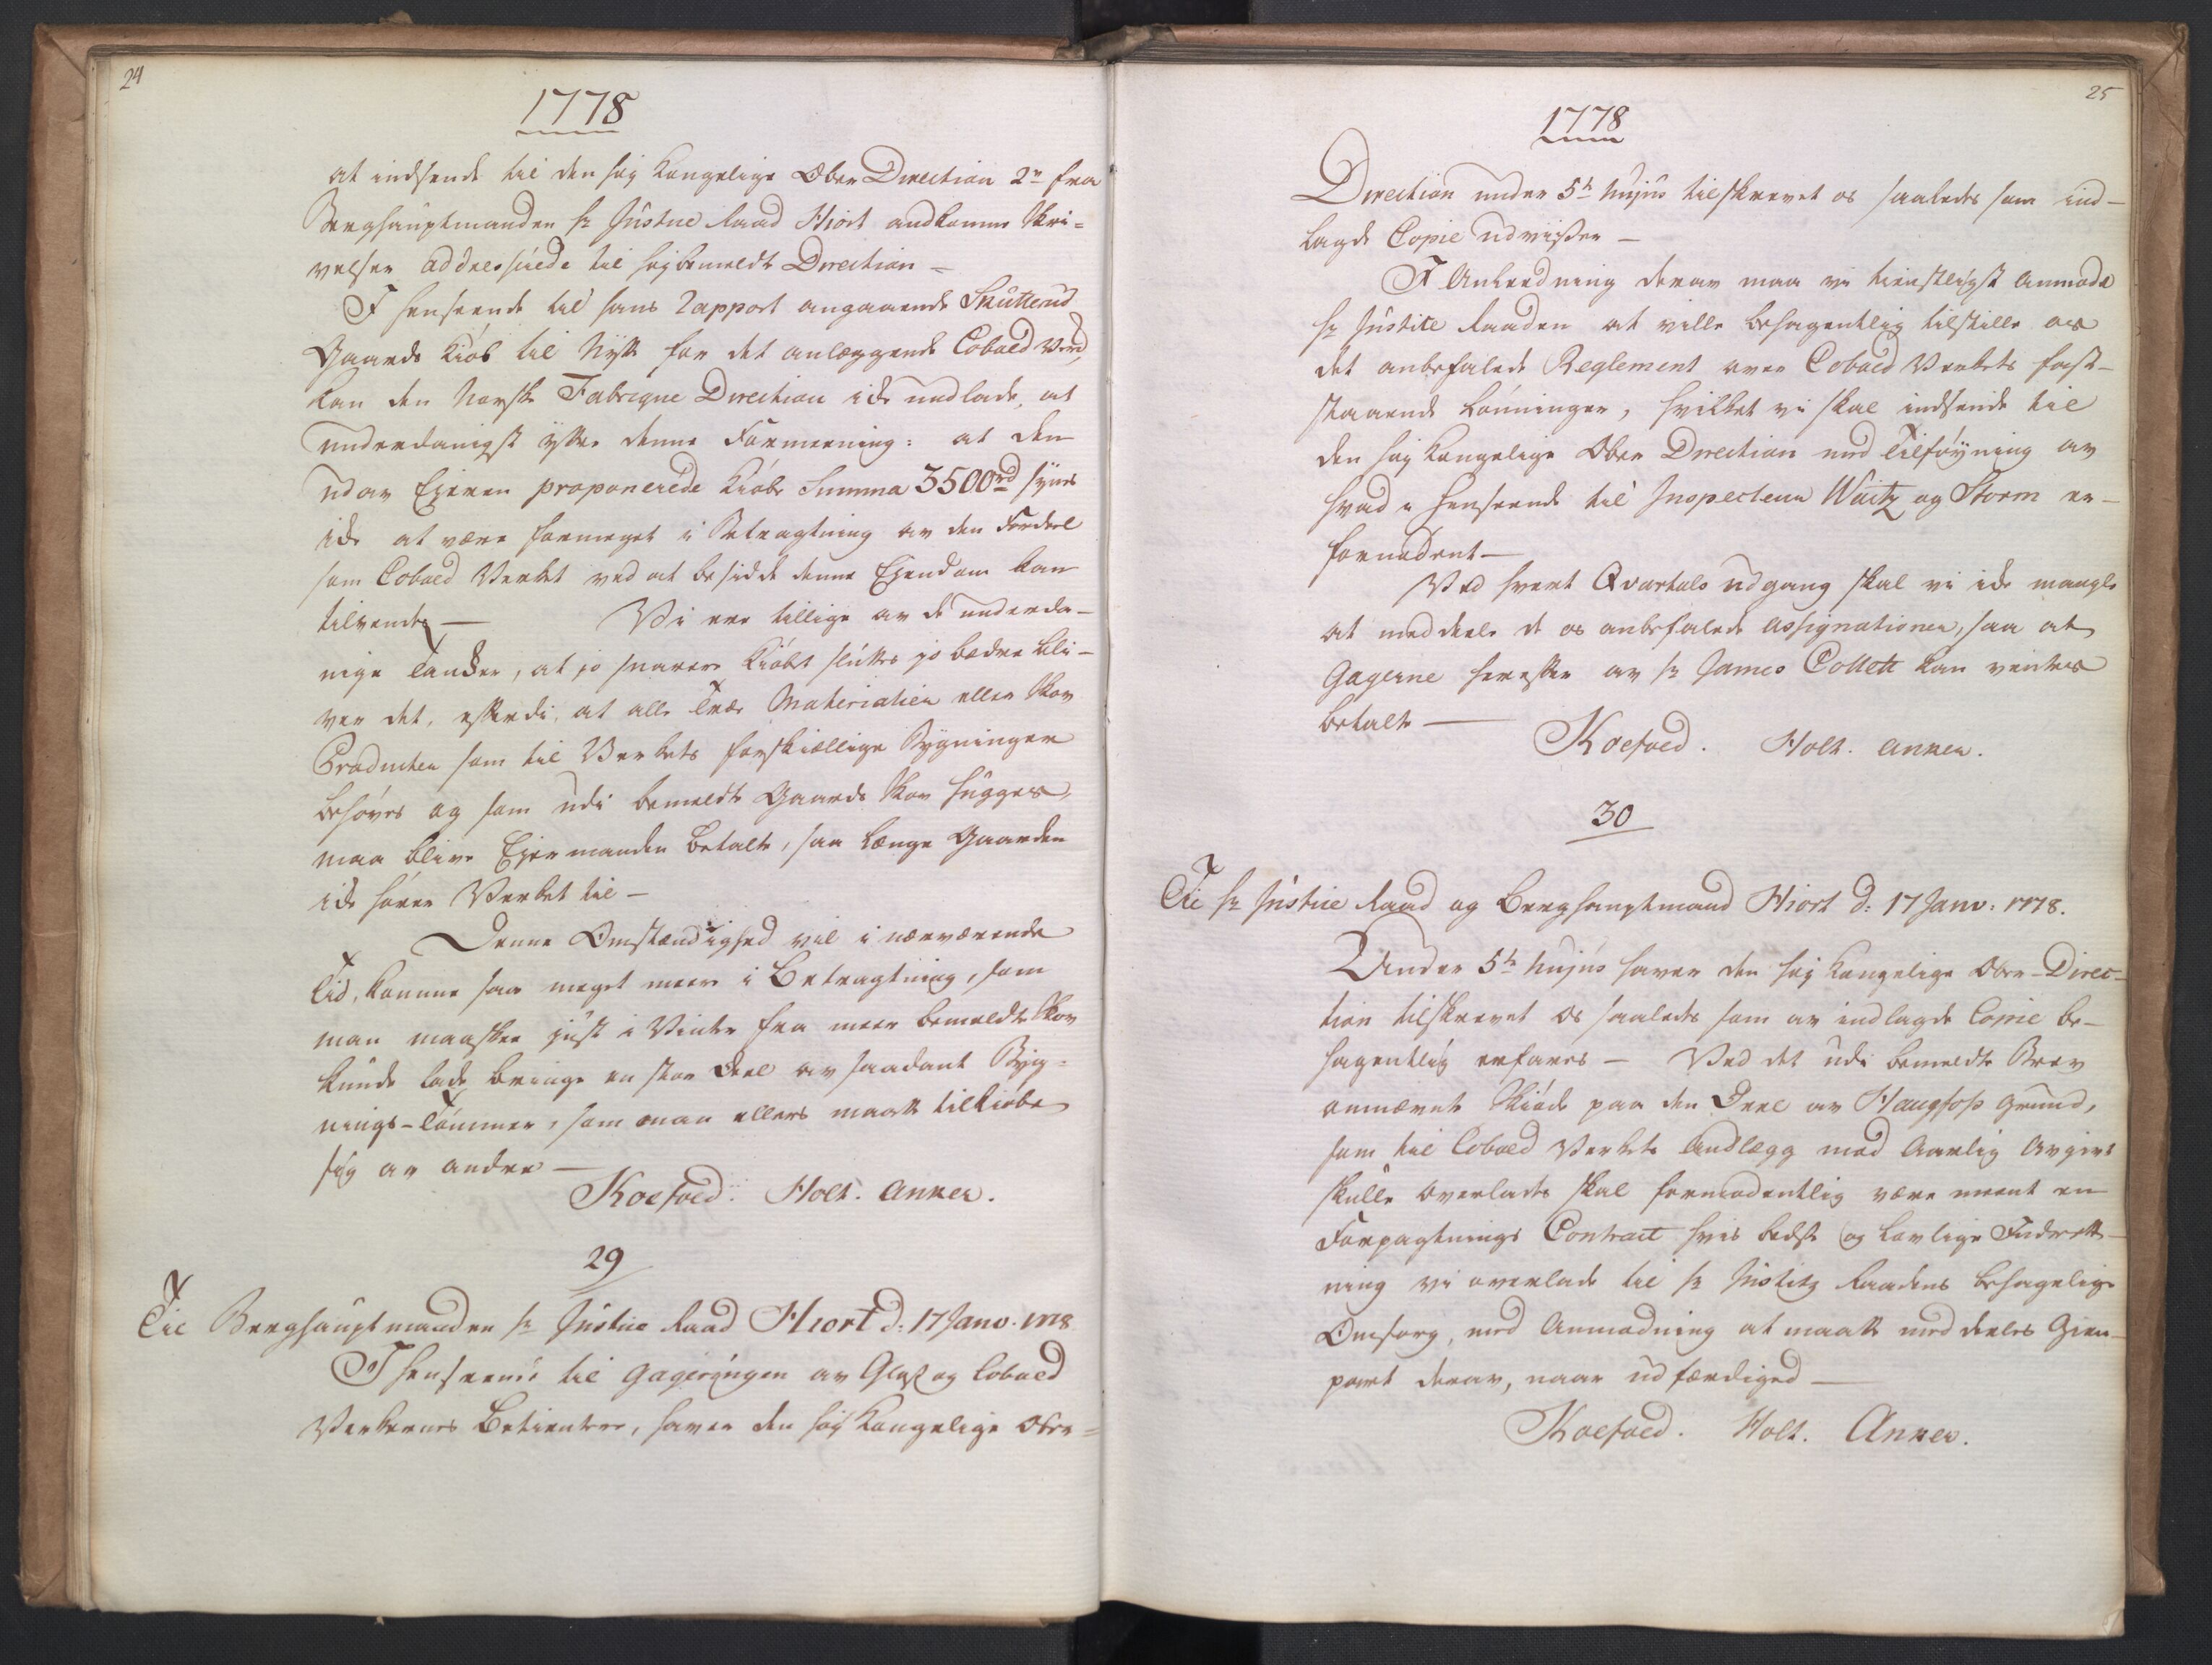 24
1778
at indsende til den høy Kongelige Ober Direction 2de fra
Berghauptmanden hr Justice Raad Hiort andkomne Skri=
velser addresserede til høybemeldte Direction =
I henseende til hans Rapport angaaende Skutterud
Gaards Kiøb til Nytte for det anlæggende Cobold Verk,
kan den Norske Fabrique Direction icke undlade, at
underdanigst yttre denne Formeening: at den
ud av Ejeren proponerede Kiøbe Summa 3500rd synes
icke at være formeget i Betragtning av den Fordeel
som Cobold Verket ved at besidde denne Ejendom kan
tilvendes — Vi ere tillige av de underda-
nige Tancker, at jo snarere Kiøbet sluttes jo bedre bli-
ver det, efterdi, at alle Træe Materialier eller Skov
Producter som til Verkets forskiællige Bygninger
behøves og som udi bemeldte Gaards Skov hugges,
maa blive Ejermanden betalte, saa længe Gaarden
icke hører Verket til —
Denne Omstændighed vil i nærværende
Tid, komme saa meget meere i Betragtning, som
man maaskee just i Vinter fra meer bemeldte Skov
kunde lade bringe en stor Deel av saadant Byg=
nings-Tømmer, som man ellers maatte tilkiøbe
sig av andre —
Koefoed. Holt. Anker.
29
Til Berghauptmanden hr Justice Raad Hiort d: 17 Janv: 1778
I henseende til Gageringen av Glas og Cobold
Verkernes Betientere, haver den høy Kongelige Ober=
25
1778
Direction under 5te hujus tilskrevet os saaledes som ind-
lagde Copie udviser —
I Anledning derav maa vi tienstligst anmode
hr Justice Raaden at ville behagentlig tilstille os
det anbefalede Reglement over Cobold Verkets fast-
staaende Lønninger, hvilket vi skal indsende til
den høy Kongelige Ober Direction med Tilføyning av
hvad i henseende til Inspecteur Waitz og Storm er-
fornødent —
Ved hvert Qvartals udgang skal vi icke mangle
at meddeele de os anbefalede assignationer, saa at
Gagerne herefter av hr James Collett kan ventes
betalte —
Koefoed. Holt. Anker.
30
Til hr Justice Raad og Berghauptmand Hiort d: 17 Janv: 1778.
Under 5te hujus haver den høy Kongelige Ober-Direc-
tion tilskrevet os saaledes som av indlagde Copie be-
hagentlig erfares — Ved det udi bemeldte Brev
ommævnte Skiøde paa den Deel av Haugfoss Grund,
som til Cobold Verkets Andlægg mod Aarlig Avgivt
skulle overlades skal formodentlig være meent en
Forpagtnings Contract hvis bedste og lovlige Indrett-
ning vi overlade til hr Justitz Raadens behagelige
Omsorg, med Anmodning at maatte meddeeles Gien-
part derav, naar udfærdiged —
Koefoed. Holt. Anker.